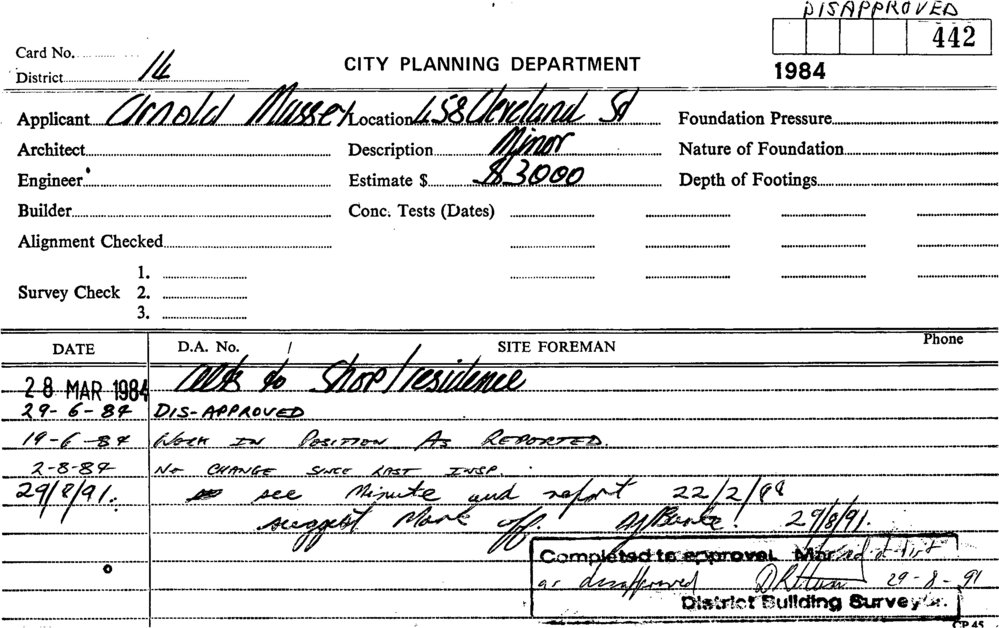 DISAPPROVED
442
1984
Card No.
District 14
CITY PLANNING DEPARTMENT
Applicant Arnold Massey Location 458 Cleveland St Foundation Pressure
Architect Description Minor Nature of Foundation
Engineer Estimate $ $3000 Depth of Footings
Builder Conc. Tests (Dates)
Alignment Checked
1.
Survey Check 2.
3.
DATE D.A. No. SITE FOREMAN Phone
28 MAR 1984 to Shop/residence
29-6-84 DIS-APPROVED
19-6-84 WORK IN POSITION AS REPORTED.
2-8-84 NO CHANGE SINCE LAST INSP.
29/8/91. see Minute and report 22/2/88
suggest Mark off. 29/8/91.
Completed to approval.
as disapproved 29-8-91
District Building Surveyor.
CP 45